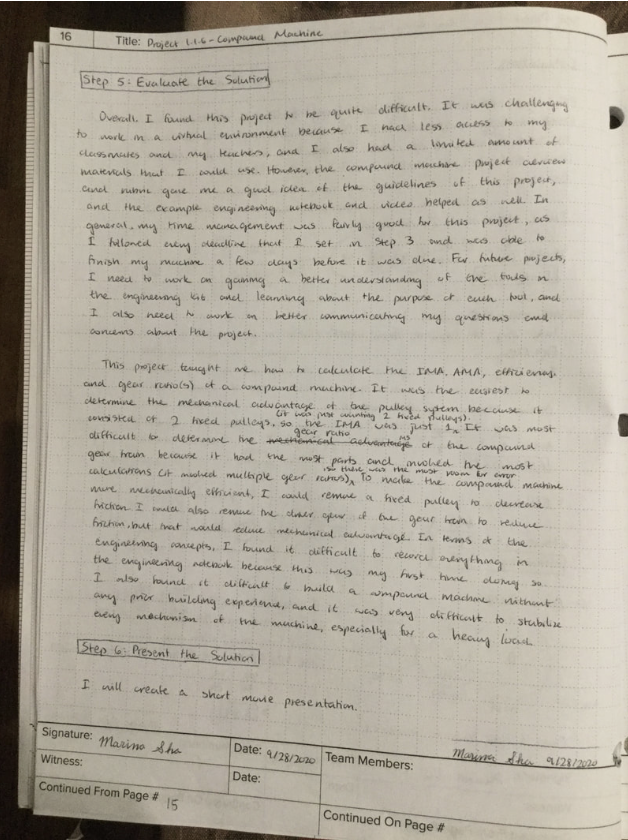 16
Title: Project 1.1.6 - Compound Machine
Step 5: Evaluate the Solution
Overall, I found this project to be quite difficult. It was challenging
to work in a virtual environment because I had less access to my
classmates and my teachers, and I also had a limited amount of
materials that I could use. However, the compound machine project overview
and rubric gave me a good idea of the guidelines of this project,
and the example engineering notebook and videos helped as well. In
general, my time management was fairly good for this project, as
I followed every deadline that I set in Step 3 and was able to
finish my machine a few days before it was due. For future projects,
I need to work on gaining a better understanding of the tools in
the engineering kit and learning about the purpose of each tool, and
I also need to work on better communicating my questions and
concerns about the project.
This project taught me how to calculate the IMA, AMA, efficiency,
and gear ratio(s) of a compound machine. It was the easiest to
determine the mechanical advantage of the pulley system because it
consisted of 2 fixed pulleys, so the IMA was just 1. It was most
(it was just wanting 2 fixed pulleys).
difficult to determine the mechanical advantage of the compound
gear ratio
gear train because it had the most parts and involved the most
calculations (it involved multiple gear ratios). To make the compound machine
so there was the most room for error
more mechanically efficient, I could remove a fixed pulley to decrease
friction. I could also remove the driver gear of the gear train to reduce
friction, but that would reduce mechanical advantage. In terms of the
engineering concepts, I found it difficult to record everything in
the engineering notebook because this was my first time doing so.
I also found it difficult to build a compound machine without
any prior building experience, and it was very difficult to stabilize
every mechanism of the machine, especially for a heavy load.
Step 6: Present the Solution
I will create a short movie presentation.
Signature: Marina Sha
Date: 9/28/2020
Team Members: Marina Sha 9/28/2020
Witness:
Date:
Continued From Page # 15
Continued On Page #